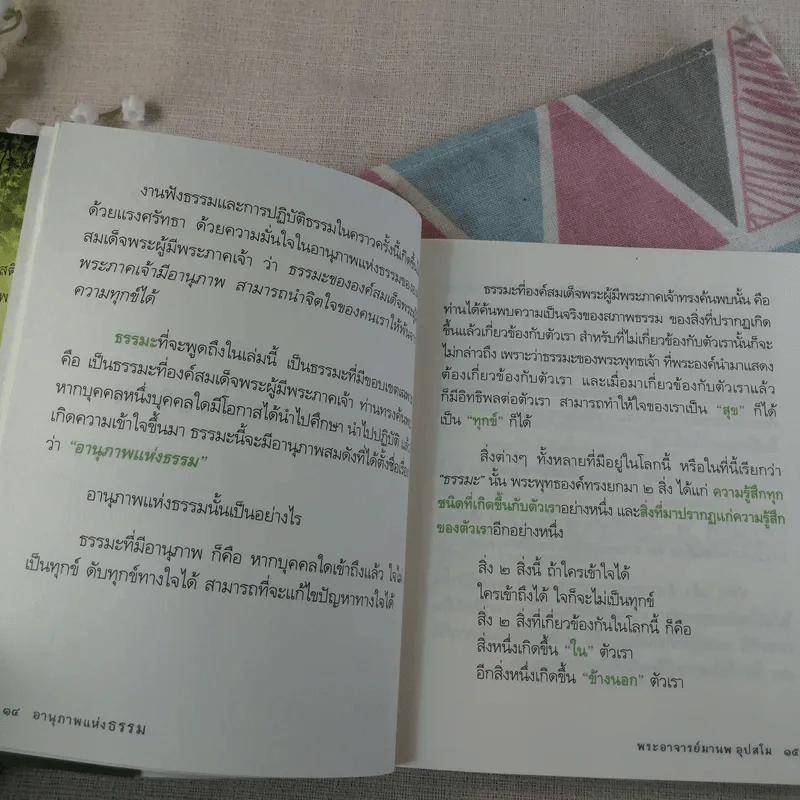 งานฟังธรรมและการปฏิบัติธรรมในคราวครั้งนี้เกิดขึ้น
ด้วยแรงศรัทธา ด้วยความมั่นใจในอานุภาพแห่งธรรมของ
สมเด็จพระผู้มีพระภาคเจ้า ว่า ธรรมะขององค์สมเด็จพระ
พระภาคเจ้ามีอานุภาพ สามารถนำจิตใจของคนเราให้พ้นจาก
ความทุกข์ได้
ธรรมะที่จะพูดถึงในเล่มนี้ เป็นธรรมะที่มีขอบเขต
คือ เป็นธรรมะที่องค์สมเด็จพระผู้มีพระภาคเจ้า ท่านทรงค้นพบ
หากบุคคลหนึ่งบุคคลใดมีโอกาสได้นำไปศึกษา นำไปปฏิบัติ แล้ว
เกิดความเข้าใจขึ้นมา ธรรมะนี้จะมีอานุภาพสมดังที่ได้ตั้งชื่อเรื่อง
ว่า “อานุภาพแห่งธรรม”
อานุภาพแห่งธรรมนั้นเป็นอย่างไร
ธรรมะที่มีอานุภาพ ก็คือ หากบุคคลใดเข้าถึงแล้ว ใจไม่
เป็นทุกข์ ดับทุกข์ทางใจได้ สามารถที่จะแก้ไขปัญหาทางใจได้
๑๔ อานุภาพแห่งธรรม
ธรรมะที่องค์สมเด็จพระผู้มีพระภาคเจ้าทรงค้นพบนั้น คือ
ท่านได้ค้นพบความเป็นจริงของสภาพธรรม ของสิ่งที่ปรากฏเกิด
ขึ้นแล้วเกี่ยวข้องกับตัวเรา สำหรับที่ไม่เกี่ยวข้องกับตัวเรานั้นก็จะ
ไม่กล่าวถึง เพราะว่าธรรมะของพระพุทธเจ้า ที่พระองค์นำมาแสดง
ต้องเกี่ยวข้องกับตัวเรา และเมื่อมาเกี่ยวข้องกับตัวเราแล้ว
ก็มีอิทธิพลต่อตัวเรา สามารถทำให้ใจของเราเป็น “สุข” ก็ได้
เป็น “ทุกข์” ก็ได้
สิ่งต่างๆ ทั้งหลายที่มีอยู่ในโลกนี้ หรือในที่นี้เรียกว่า
“ธรรมะ” นั้น พระพุทธองค์ทรงยกมา ๒ สิ่ง ได้แก่ ความรู้สึกทุก
ชนิดที่เกิดขึ้นกับตัวเราอย่างหนึ่ง และสิ่งที่มาปรากฏแก่ความรู้สึก
ของตัวเราอีกอย่างหนึ่ง
สิ่ง ๒ สิ่งนี้ ถ้าใครเข้าใจได้
ใครเข้าถึงได้ ใจก็จะไม่เป็นทุกข์
สิ่ง ๒ สิ่งที่เกี่ยวข้องกันในโลกนี้ ก็คือ
สิ่งหนึ่งเกิดขึ้น “ใน” ตัวเรา
อีกสิ่งหนึ่งเกิดขึ้น “ข้างนอก” ตัวเรา
พระอาจารย์มานพ อุปสโม ๑๕